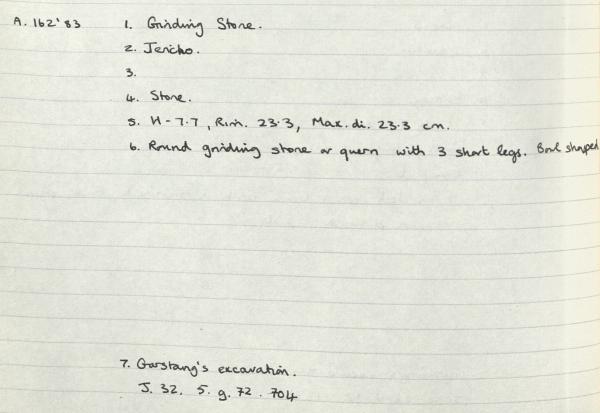 A. 162'83 1. Grinding Stone.
2. Jericho.
3.
4. Stone.
5. H - 7.7, Rim. 23.3, Max. di. 23.3 cm.
6. Round grinding stone or quern with 3 short legs. Bowl shaped
7. Garstang's excavation.
J. 32. 5. g. 72. 704